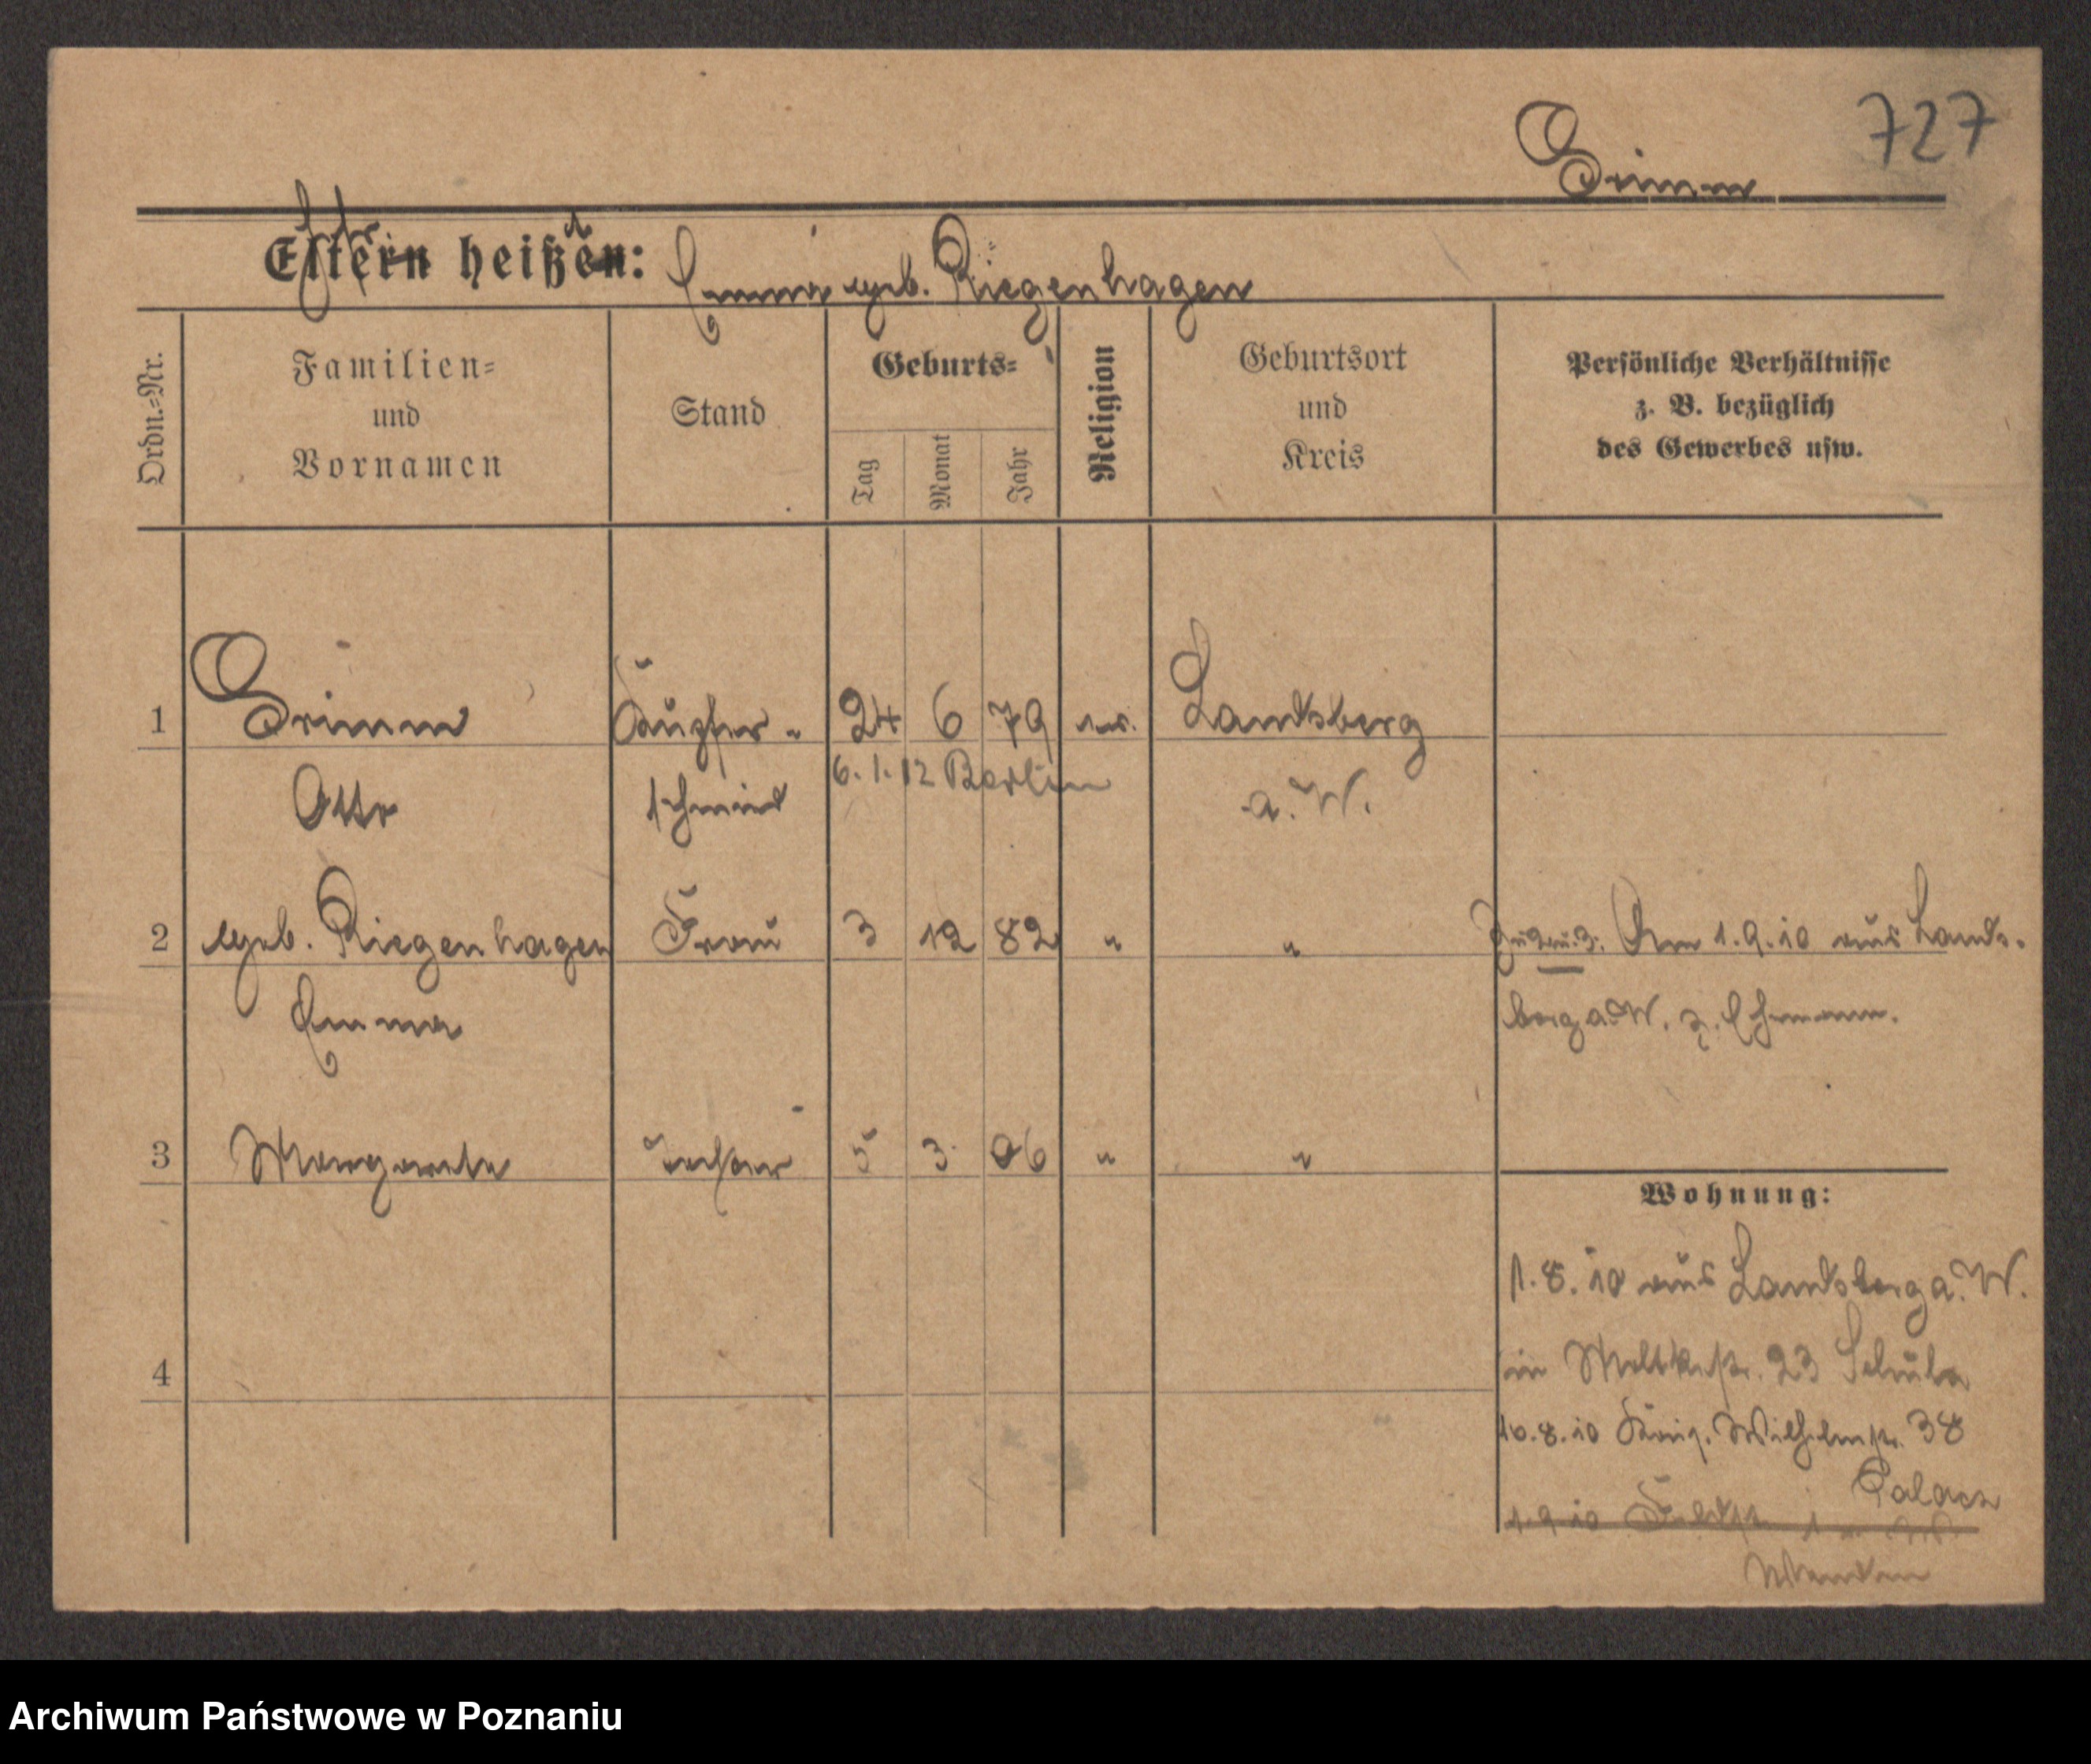 727
Grimm
Eltern heißen: Emma geb. Riegenhagen
Ordn.=Nr.
Familien=
und
Vornamen
Stand
Geburts=
Tag
Monat
Jahr
Religion
Geburtsort
und
Kreis
Persönliche Verhältnisse
z. B. bezüglich
des Gewerbes usw.
1 Grimm Kupfer- 24 6 79 ev. Landsberg
6. 1. 12 Berlin
Otto schmied a. W.
2 geb. Riegenhagen Frau 3 12 82 " " Zu 2 u. 3. Am 1.9.10 aus Lands-
Emma berg a. W. z. Ehemann.
3 Margarete Tochter 5 3 06 " "
Wohnung:
1.8.10 aus Landsberg a. W.
in Moltkestr. 23 Schulz
4
10.8.10 König. Wilhelmstr. 38
1.9.10
Archiwum Państwowe w Poznaniu